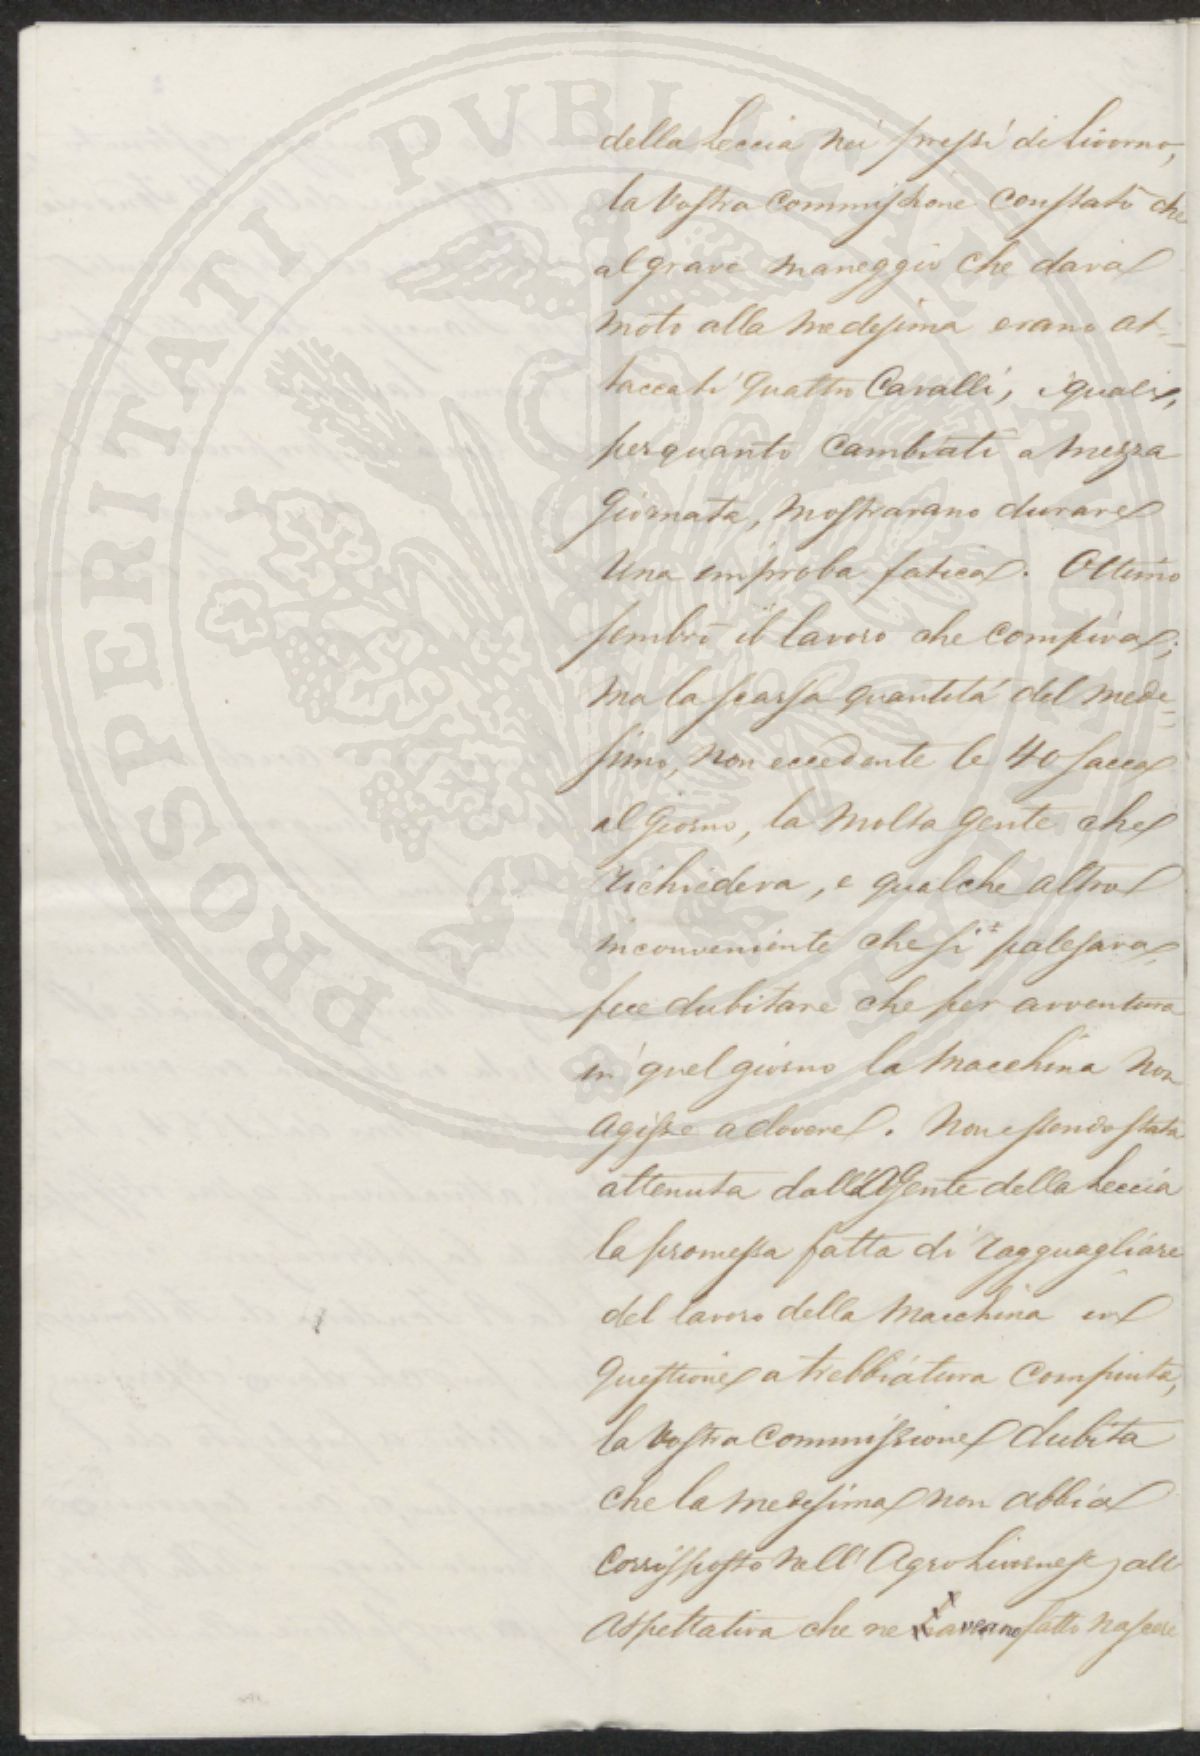 PROSPERITATI PVBLICAE AVGENDAE
della Leccia nei pressi di Livorno,
la Vostra Commissione constatò che
al grave maneggio che dava
moto alla medesima erano at-
taccati quattro Cavalli, i quali,
per quanto cambiati a mezza
giornata, mostravano durare
una improba fatica. Ottimo
sembrò il lavoro che compiva;
ma la scarsa quantità del mede-
simo, non eccedente le 40 sacca
al giorno, la molta gente che
richiedeva, e qualche altro
inconveniente che si palesava,
fece dubitare che per avventura
in quel giorno la macchina non
agisse a dovere. Non essendo stata
attenuta dall'Agente della Leccia
la promessa fatta di ragguagliare
del lavoro della Macchina in
questione a trebbiatura compiuta,
la Vostra Commissione dubita
che la medesima non abbia
corrisposto nell'Agro Livornese, all'
aspettativa che ne aveano fatto nascere